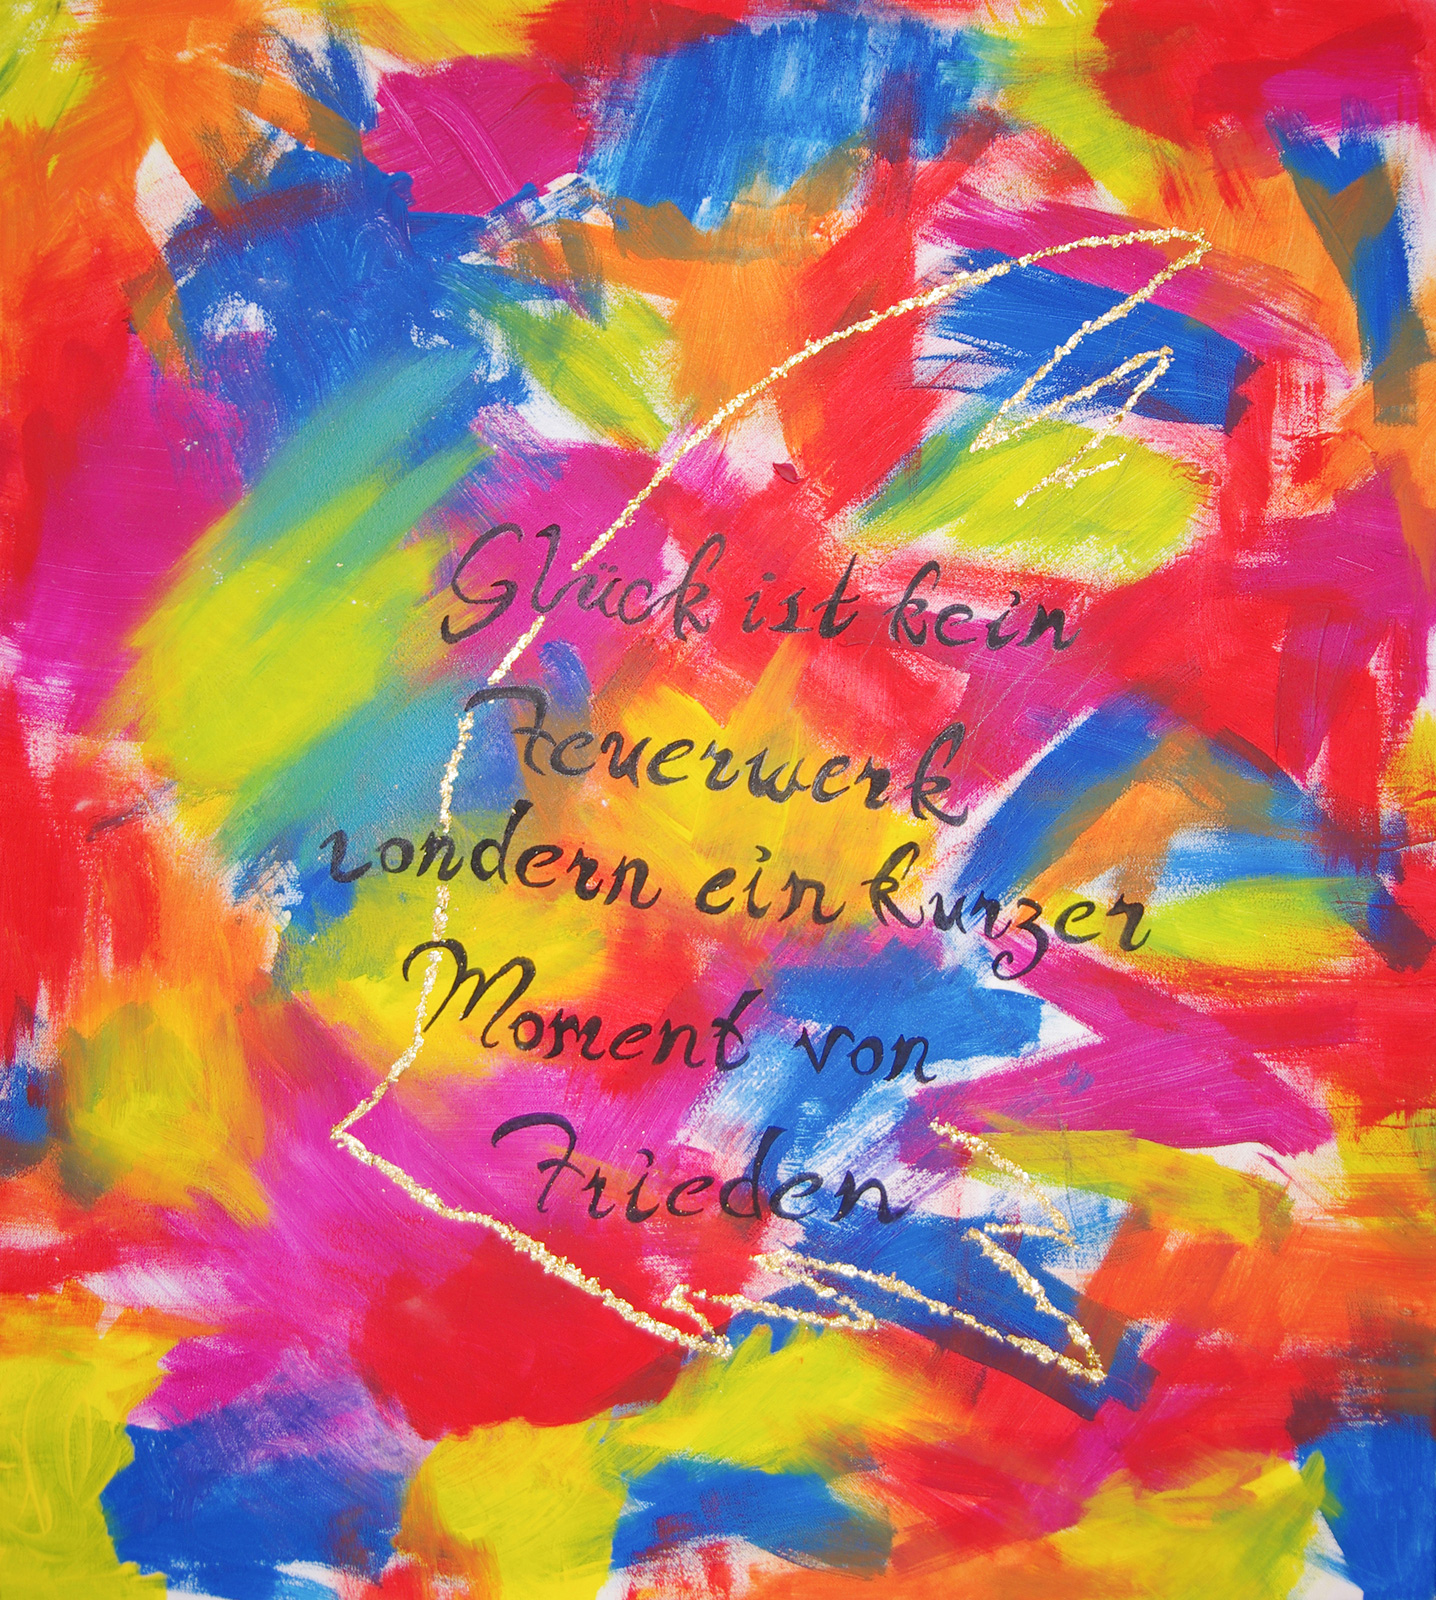 Glück ist kein
Feuerwerk
sondern ein kurzer
Moment von
Frieden